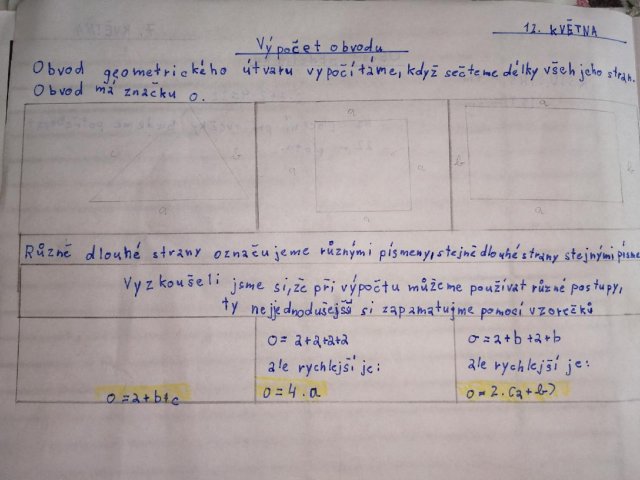 12. KVĚTNA
Výpočet obvodu
Obvod geometrického útvaru vypočítáme, když sečteme délky všech jeho stran.
Obvod má značku o.
c
b
a
a
a
a
a
b
b
a
Různě dlouhé strany označujeme různými písmeny, stejně dlouhé strany stejnými písme
Vyzkoušeli jsme si, že při výpočtu můžeme používat různé postupy,
ty nejjednodušejší si zapamatujme pomocí vzorečků
o = a+b+c
o = a+a+a+a
ale rychlejší je:
o = 4 . a
o = a+b+a+b
ale rychlejší je:
o = 2 . (a+b)